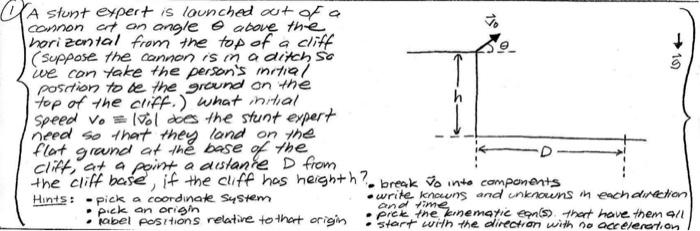 ① A stunt expert is launched out of a
cannon at an angle θ above the
horizontal from the top of a cliff
(suppose the cannon is in a ditch so
we can take the person's initial
position to be the ground on the
top of the cliff.) What initial
speed v₀ ≡ |v⃗₀| does the stunt expert
need so that they land on the
flat ground at the base of the
cliff, at a point a distance D from
the cliff base, if the cliff has height h?
Hints: • pick a coordinate system
• pick an origin
• label positions relative to that origin
• break v⃗₀ into components
• write knowns and unknowns in each direction
and time
• pick the kinematic eqn(s). that have them all
• start with the direction with no acceleration
v⃗₀
θ
g⃗
h
D